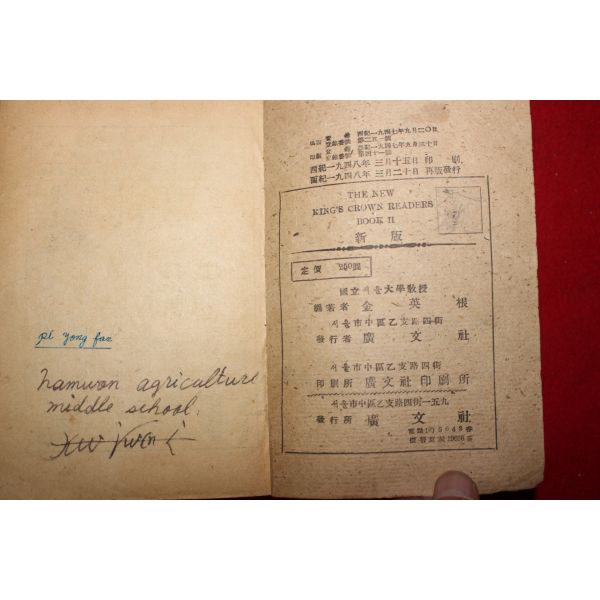 pi yong fan
namwon agriculture
middle school.
西紀一九四七年九月二〇日
西紀一九四八年 三月十五日 印刷
西紀一九四八年 三月二十日 再版發行
THE NEW
KING'S CROWN READERS
BOOK II
新版
定價 250圓
國立서울大學敎授
編著者 金英根
서울市中區乙支路四街
發行者 廣文社
서울市中區乙支路四街
印刷所 廣文社印刷所
서울市中區乙支路四街一五九
發行所 廣文社